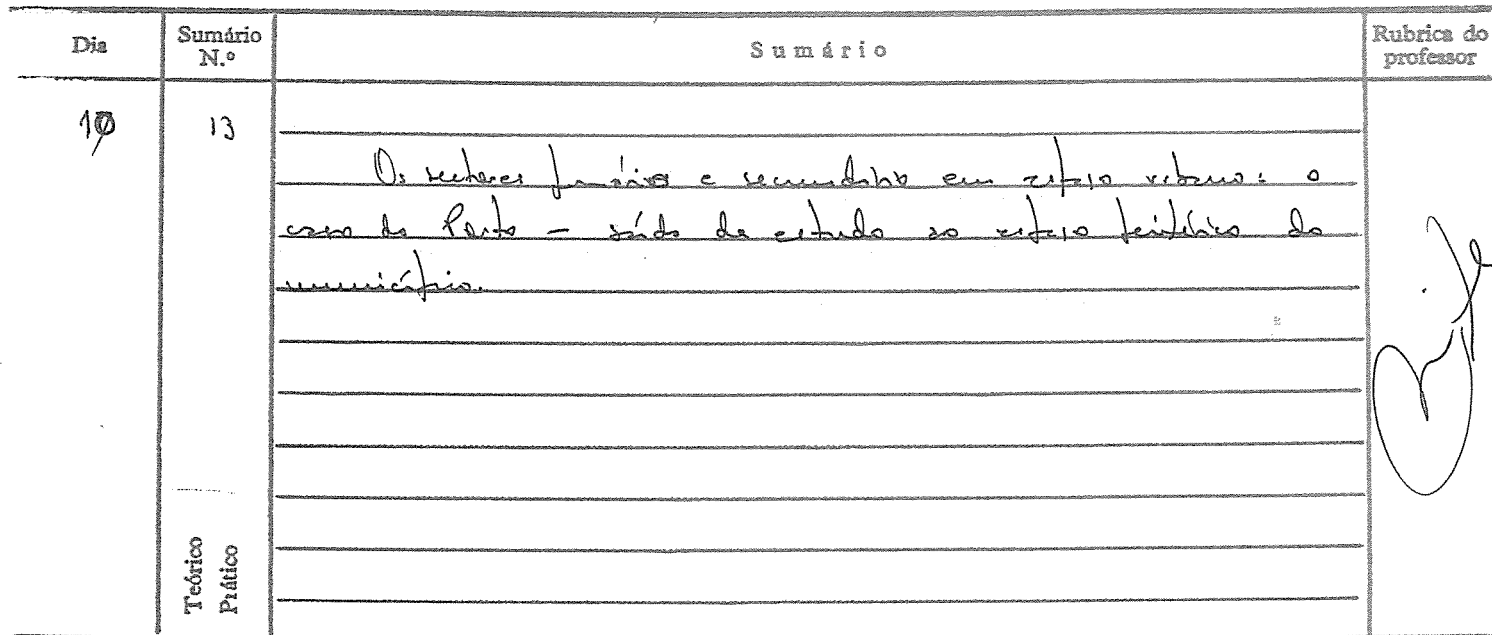 Dia
Sumário
N.º
Sumário
Rubrica do
professor
10
13
Os sectores primário e secundário em espaço urbano: o
caso do Porto – saída de estudo ao espaço periférico do
município.
Teórico
Prático